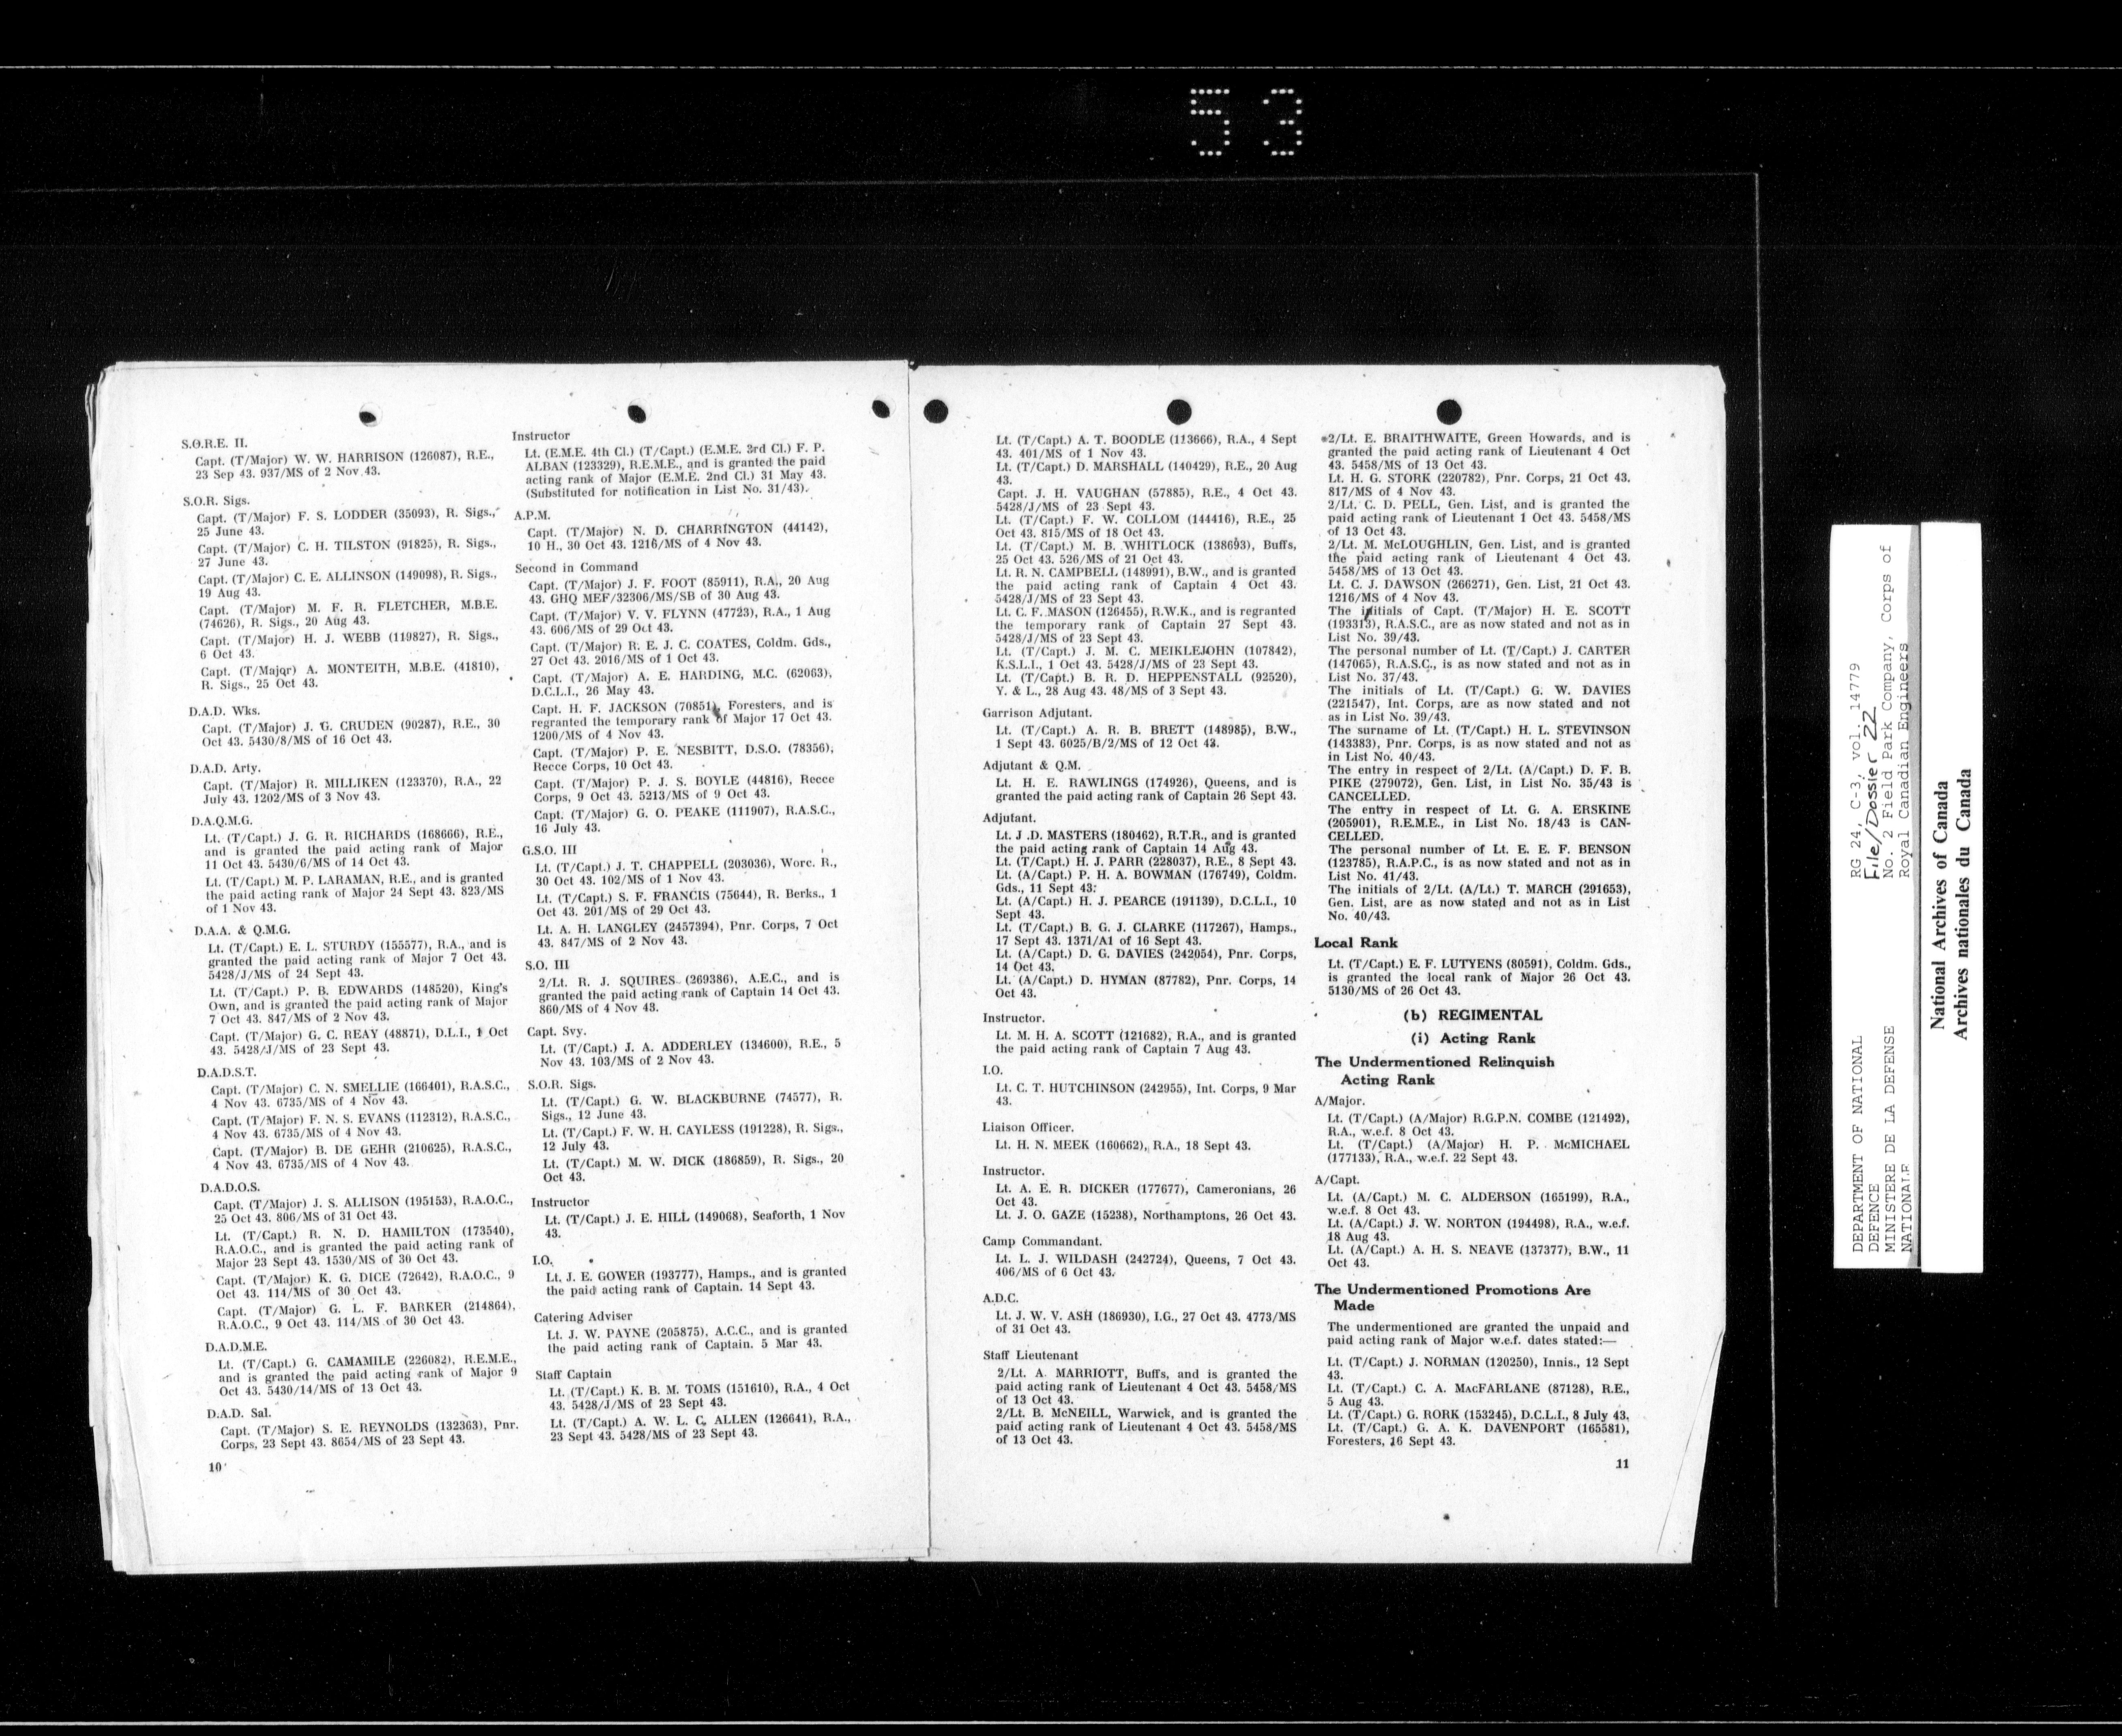 53
S.O.R.E. II.
Capt. (T/Major) W. W. HARRISON (126087), R.E.,
23 Sep 43. 937/MS of 2 Nov 43.
S.O.R. Sigs.
Capt. (T/Major) F. S. LODDER (35093), R. Sigs.,
25 June 43.
Capt. (T/Major) C. H. TILSTON (91825), R. Sigs.,
27 June 43.
Capt. (T/Major) C. E. ALLINSON (149098), R. Sigs.,
19 Aug 43.
Capt. (T/Major) M. F. R. FLETCHER, M.B.E.
(74626), R. Sigs., 20 Aug 43.
Capt. (T/Major) H. J. WEBB (119827), R. Sigs.,
6 Oct 43.
Capt. (T/Major) A. MONTEITH, M.B.E. (41810),
R. Sigs., 25 Oct 43.
D.A.D. Wks.
Capt. (T/Major) J. G. CRUDEN (90287), R.E., 30
Oct 43. 5430/8/MS of 16 Oct 43.
D.A.D. Arty.
Capt. (T/Major) R. MILLIKEN (123370), R.A., 22
July 43. 1202/MS of 3 Nov 43.
D.A.Q.M.G.
Lt. (T/Capt.) J. G. R. RICHARDS (168666), R.E.,
and is granted the paid acting rank of Major
11 Oct 43. 5430/6/MS of 14 Oct 43.
Lt. (T/Capt.) M. P. LARAMAN, R.E., and is granted
the paid acting rank of Major 24 Sept 43. 823/MS
of 1 Nov 43.
D.A.A. & Q.M.G.
Lt. (T/Capt.) E. L. STURDY (155577), R.A., and is
granted the paid acting rank of Major 7 Oct 43.
5428/J/MS of 24 Sept 43.
Lt. (T/Capt.) P. B. EDWARDS (148520), King's
Own, and is granted the paid acting rank of Major
7 Oct 43. 847/MS of 2 Nov 43.
Capt. (T/Major) G. C. REAY (48871), D.L.I., 1 Oct
43. 5428/J/MS of 23 Sept 43.
D.A.D.S.T.
Capt. (T/Major) C. N. SMELLIE (166401), R.A.S.C.,
4 Nov 43. 6735/MS of 4 Nov 43.
Capt. (T/Major) F. N. S. EVANS (112312), R.A.S.C.,
4 Nov 43. 6735/MS of 4 Nov 43.
Capt. (T/Major) B. DE GEHR (210625), R.A.S.C.,
4 Nov 43. 6735/MS of 4 Nov 43.
D.A.D.O.S.
Capt. (T/Major) J. S. ALLISON (195153), R.A.O.C.,
25 Oct 43. 806/MS of 31 Oct 43.
Lt. (T/Capt.) R. N. D. HAMILTON (173540),
R.A.O.C., and is granted the paid acting rank of
Major 23 Sept 43. 1530/MS of 30 Oct 43.
Capt. (T/Major) K. G. DICE (72642), R.A.O.C., 9
Oct 43. 114/MS of 30 Oct 43.
Capt. (T/Major) G. L. F. BARKER (214864),
R.A.O.C., 9 Oct 43. 114/MS of 30 Oct 43.
D.A.D.M.E.
Lt. (T/Capt.) G. CAMAMILE (226082), R.E.M.E.,
and is granted the paid acting rank of Major 9
Oct 43. 5430/14/MS of 13 Oct 43.
D.A.D. Sal.
Capt. (T/Major) S. E. REYNOLDS (132363), Pnr.
Corps, 23 Sept 43. 8654/MS of 23 Sept 43.
10
Instructor
Lt. (E.M.E. 4th Cl.) (T/Capt.) (E.M.E. 3rd Cl.) F. P.
ALBAN (123329), R.E.M.E., and is granted the paid
acting rank of Major (E.M.E. 2nd Cl.) 31 May 43.
(Substituted for notification in List No. 31/43).
A.P.M.
Capt. (T/Major) N. D. CHARRINGTON (44142),
10 H., 30 Oct 43. 1216/MS of 4 Nov 43.
Second in Command
Capt. (T/Major) J. F. FOOT (85911), R.A., 20 Aug
43. GHQ MEF/32306/MS/SB of 30 Aug 43.
Capt. (T/Major) V. V. FLYNN (47723), R.A., 1 Aug
43. 606/MS of 29 Oct 43.
Capt. (T/Major) R. E. J. C. COATES, Coldm. Gds.,
27 Oct 43. 2016/MS of 1 Oct 43.
Capt. (T/Major) A. E. HARDING, M.C. (62063),
D.C.L.I., 26 May 43.
Capt. H. F. JACKSON (70851), Foresters, and is
regranted the temporary rank of Major 17 Oct 43.
1200/MS of 4 Nov 43.
Capt. (T/Major) P. E. NESBITT, D.S.O. (78356),
Recce Corps, 10 Oct 43.
Capt. (T/Major) P. J. S. BOYLE (44816), Recce
Corps, 9 Oct 43. 5213/MS of 9 Oct 43.
Capt. (T/Major) G. O. PEAKE (111907), R.A.S.C.,
16 July 43.
G.S.O. III
Lt. (T/Capt.) J. T. CHAPPELL (203036), Worc. R.,
30 Oct 43. 102/MS of 1 Nov 43.
Lt. (T/Capt.) S. F. FRANCIS (75644), R. Berks., 1
Oct 43. 201/MS of 29 Oct 43.
Lt. A. H. LANGLEY (2457394), Pnr. Corps, 7 Oct
43. 847/MS of 2 Nov 43.
S.O. III
2/Lt. R. J. SQUIRES (269386), A.E.C., and is
granted the paid acting rank of Captain 14 Oct 43.
860/MS of 4 Nov 43.
Capt. Svy.
Lt. (T/Capt.) J. A. ADDERLEY (134600), R.E., 5
Nov 43. 103/MS of 2 Nov 43.
S.O.R. Sigs.
Lt. (T/Capt.) G. W. BLACKBURNE (74577), R.
Sigs., 12 June 43.
Lt. (T/Capt.) F. W. H. CAYLESS (191228), R. Sigs.,
12 July 43.
Lt. (T/Capt.) M. W. DICK (186859), R. Sigs., 20
Oct 43.
Instructor
Lt. (T/Capt.) J. E. HILL (149068), Seaforth, 1 Nov
43.
I.O.
Lt. J. E. GOWER (193777), Hamps., and is granted
the paid acting rank of Captain. 14 Sept 43.
Catering Adviser
Lt. J. W. PAYNE (205875), A.C.C., and is granted
the paid acting rank of Captain. 5 Mar 43.
Staff Captain
Lt. (T/Capt.) K. B. M. TOMS (151610), R.A., 4 Oct
43. 5428/J/MS of 23 Sept 43.
Lt. (T/Capt.) A. W. L. C. ALLEN (126641), R.A.,
23 Sept 43. 5428/MS of 23 Sept 43.
Lt. (T/Capt.) A. T. BOODLE (113666), R.A., 4 Sept
43. 401/MS of 1 Nov 43.
Lt. (T/Capt.) D. MARSHALL (140429), R.E., 20 Aug
43.
Capt. J. H. VAUGHAN (57885), R.E., 4 Oct 43.
5428/J/MS of 23 Sept 43.
Lt. (T/Capt.) F. W. COLLOM (144416), R.E., 25
Oct 43. 815/MS of 18 Oct 43.
Lt. (T/Capt.) M. B. WHITLOCK (138693), Buffs,
25 Oct 43. 526/MS of 21 Oct 43.
Lt. R. N. CAMPBELL (148991), B.W., and is granted
the paid acting rank of Captain 4 Oct 43.
5428/J/MS of 23 Sept 43.
Lt. C. F. MASON (126455), R.W.K., and is regranted
the temporary rank of Captain 27 Sept 43.
5428/J/MS of 23 Sept 43.
Lt. (T/Capt.) J. M. C. MEIKLEJOHN (107842),
K.S.L.I., 1 Oct 43. 5428/J/MS of 23 Sept 43.
Lt. (T/Capt.) B. R. D. HEPPENSTALL (92520),
Y. & L., 28 Aug 43. 48/MS of 3 Sept 43.
Garrison Adjutant.
Lt. (T/Capt.) A. R. B. BRETT (148985), B.W.,
1 Sept 43. 6025/B/2/MS of 12 Oct 43.
Adjutant & Q.M.
Lt. H. E. RAWLINGS (174926), Queens, and is
granted the paid acting rank of Captain 26 Sept 43.
Adjutant.
Lt. J .D. MASTERS (180462), R.T.R., and is granted
the paid acting rank of Captain 14 Aug 43.
Lt. (T/Capt.) H. J. PARR (228037), R.E., 8 Sept 43.
Lt. (A/Capt.) P. H. A. BOWMAN (176749), Coldm.
Gds., 11 Sept 43.
Lt. (A/Capt.) H. J. PEARCE (191139), D.C.L.I., 10
Sept 43.
Lt. (T/Capt.) B. G. J. CLARKE (117267), Hamps.,
17 Sept 43. 1371/A1 of 16 Sept 43.
Lt. (A/Capt.) D. G. DAVIES (242054), Pnr. Corps,
14 Oct 43.
Lt. (A/Capt.) D. HYMAN (87782), Pnr. Corps, 14
Oct 43.
Instructor.
Lt. M. H. A. SCOTT (121682), R.A., and is granted
the paid acting rank of Captain 7 Aug 43.
I.O.
Lt. C. T. HUTCHINSON (242955), Int. Corps, 9 Mar
43.
Liaison Officer.
Lt. H. N. MEEK (160662), R.A., 18 Sept 43.
Instructor.
Lt. A. E. R. DICKER (177677), Cameronians, 26
Oct 43.
Lt. J. O. GAZE (15238), Northamptons, 26 Oct 43.
Camp Commandant.
Lt. L. J. WILDASH (242724), Queens, 7 Oct 43.
406/MS of 6 Oct 43.
A.D.C.
Lt. J. W. V. ASH (186930), I.G., 27 Oct 43. 4773/MS
of 31 Oct 43.
Staff Lieutenant
2/Lt. A. MARRIOTT, Buffs, and is granted the
paid acting rank of Lieutenant 4 Oct 43. 5458/MS
of 13 Oct 43.
2/Lt. B. McNEILL, Warwick, and is granted the
paid acting rank of Lieutenant 4 Oct 43. 5458/MS
of 13 Oct 43.
2/Lt. E. BRAITHWAITE, Green Howards, and is
granted the paid acting rank of Lieutenant 4 Oct
43. 5458/MS of 13 Oct 43.
Lt. H. G. STORK (220782), Pnr. Corps, 21 Oct 43.
817/MS of 4 Nov 43.
2/Lt. C. D. PELL, Gen. List, and is granted the
paid acting rank of Lieutenant 1 Oct 43. 5458/MS
of 13 Oct 43.
2/Lt. M. McLOUGHLIN, Gen. List, and is granted
the paid acting rank of Lieutenant 4 Oct 43.
5458/MS of 13 Oct 43.
Lt. C. J. DAWSON (266271), Gen. List, 21 Oct 43.
1216/MS of 4 Nov 43.
The initials of Capt. (T/Major) H. E. SCOTT
(193313), R.A.S.C., are as now stated and not as in
List No. 39/43.
The personal number of Lt. (T/Capt.) J. CARTER
(147065), R.A.S.C., is as now stated and not as in
List No. 37/43.
The initials of Lt. (T/Capt.) G. W. DAVIES
(221547), Int. Corps, are as now stated and not
as in List No. 39/43.
The surname of Lt. (T/Capt.) H. L. STEVINSON
(143383), Pnr. Corps, is as now stated and not as
in List No. 40/43.
The entry in respect of 2/Lt. (A/Capt.) D. F. B.
PIKE (279072), Gen. List, in List No. 35/43 is
CANCELLED.
The entry in respect of Lt. G. A. ERSKINE
(205901), R.E.M.E., in List No. 18/43 is CAN-
CELLED.
The personal number of Lt. E. E. F. BENSON
(123785), R.A.P.C., is as now stated and not as in
List No. 41/43.
The initials of 2/Lt. (A/Lt.) T. MARCH (291653),
Gen. List, are as now stated and not as in List
No. 40/43.
Local Rank
Lt. (T/Capt.) E. F. LUTYENS (80591), Coldm. Gds.,
is granted the local rank of Major 26 Oct 43.
5130/MS of 26 Oct 43.
(b) REGIMENTAL
(i) Acting Rank
The Undermentioned Relinquish
Acting Rank
A/Major.
Lt. (T/Capt.) (A/Major) R.G.P.N. COMBE (121492),
R.A., w.e.f. 8 Oct 43.
Lt. (T/Capt.) (A/Major) H. P. McMICHAEL
(177133), R.A., w.e.f. 22 Sept 43.
A/Capt.
Lt. (A/Capt.) M. C. ALDERSON (165199), R.A.,
w.e.f. 8 Oct 43.
Lt. (A/Capt.) J. W. NORTON (194498), R.A., w.e.f.
18 Aug 43.
Lt. (A/Capt.) A. H. S. NEAVE (137377), B.W., 11
Oct 43.
The Undermentioned Promotions Are
Made
The undermentioned are granted the unpaid and
paid acting rank of Major w.e.f. dates stated:—
Lt. (T/Capt.) J. NORMAN (120250), Innis., 12 Sept
43.
Lt. (T/Capt.) C. A. MACFARLANE (87128), R.E.,
5 Aug 43.
Lt. (T/Capt.) G. RORK (153245), D.C.L.I., 8 July 43.
Lt. (T/Capt.) G. A. K. DAVENPORT (165581),
Foresters, 16 Sept 43.
11
DEPARTMENT OF NATIONAL
DEFENCE
MINISTERE DE LA DEFENSE
NATIONALE
RG 24, C-3, vol. 14779
File/Dossier 22
No. 2 Field Park Company, Corps of
Royal Canadian Engineers
National Archives of Canada
Archives nationales du Canada